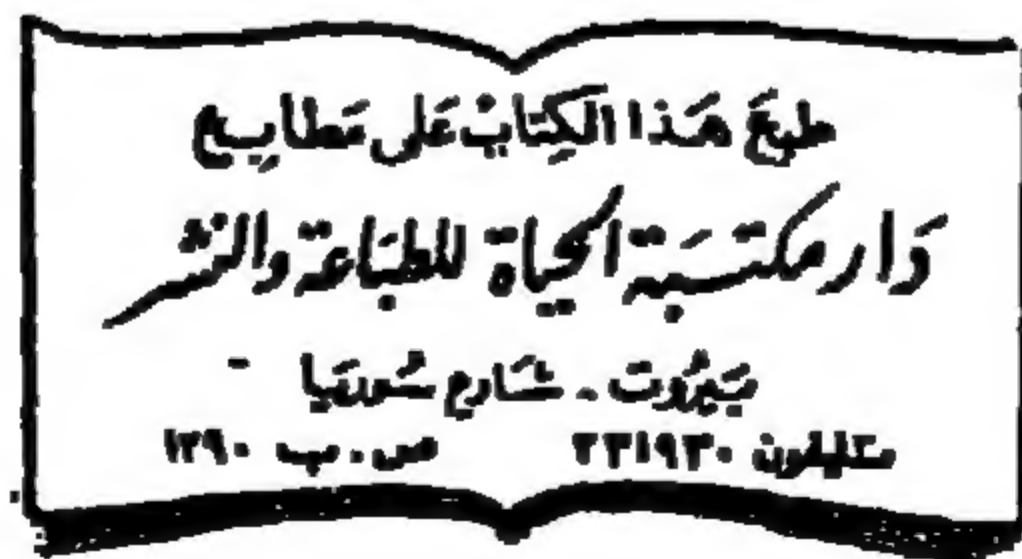 طبعَ هَذا الكِتابْ عَلى مَطابِع
دَار مكتبَة الحياة للطبَاعة والنشر
بَيروت - شارع سُوريَا -
تليفون ٢٣١٩٣٠ ص . ب ١٣٩٠